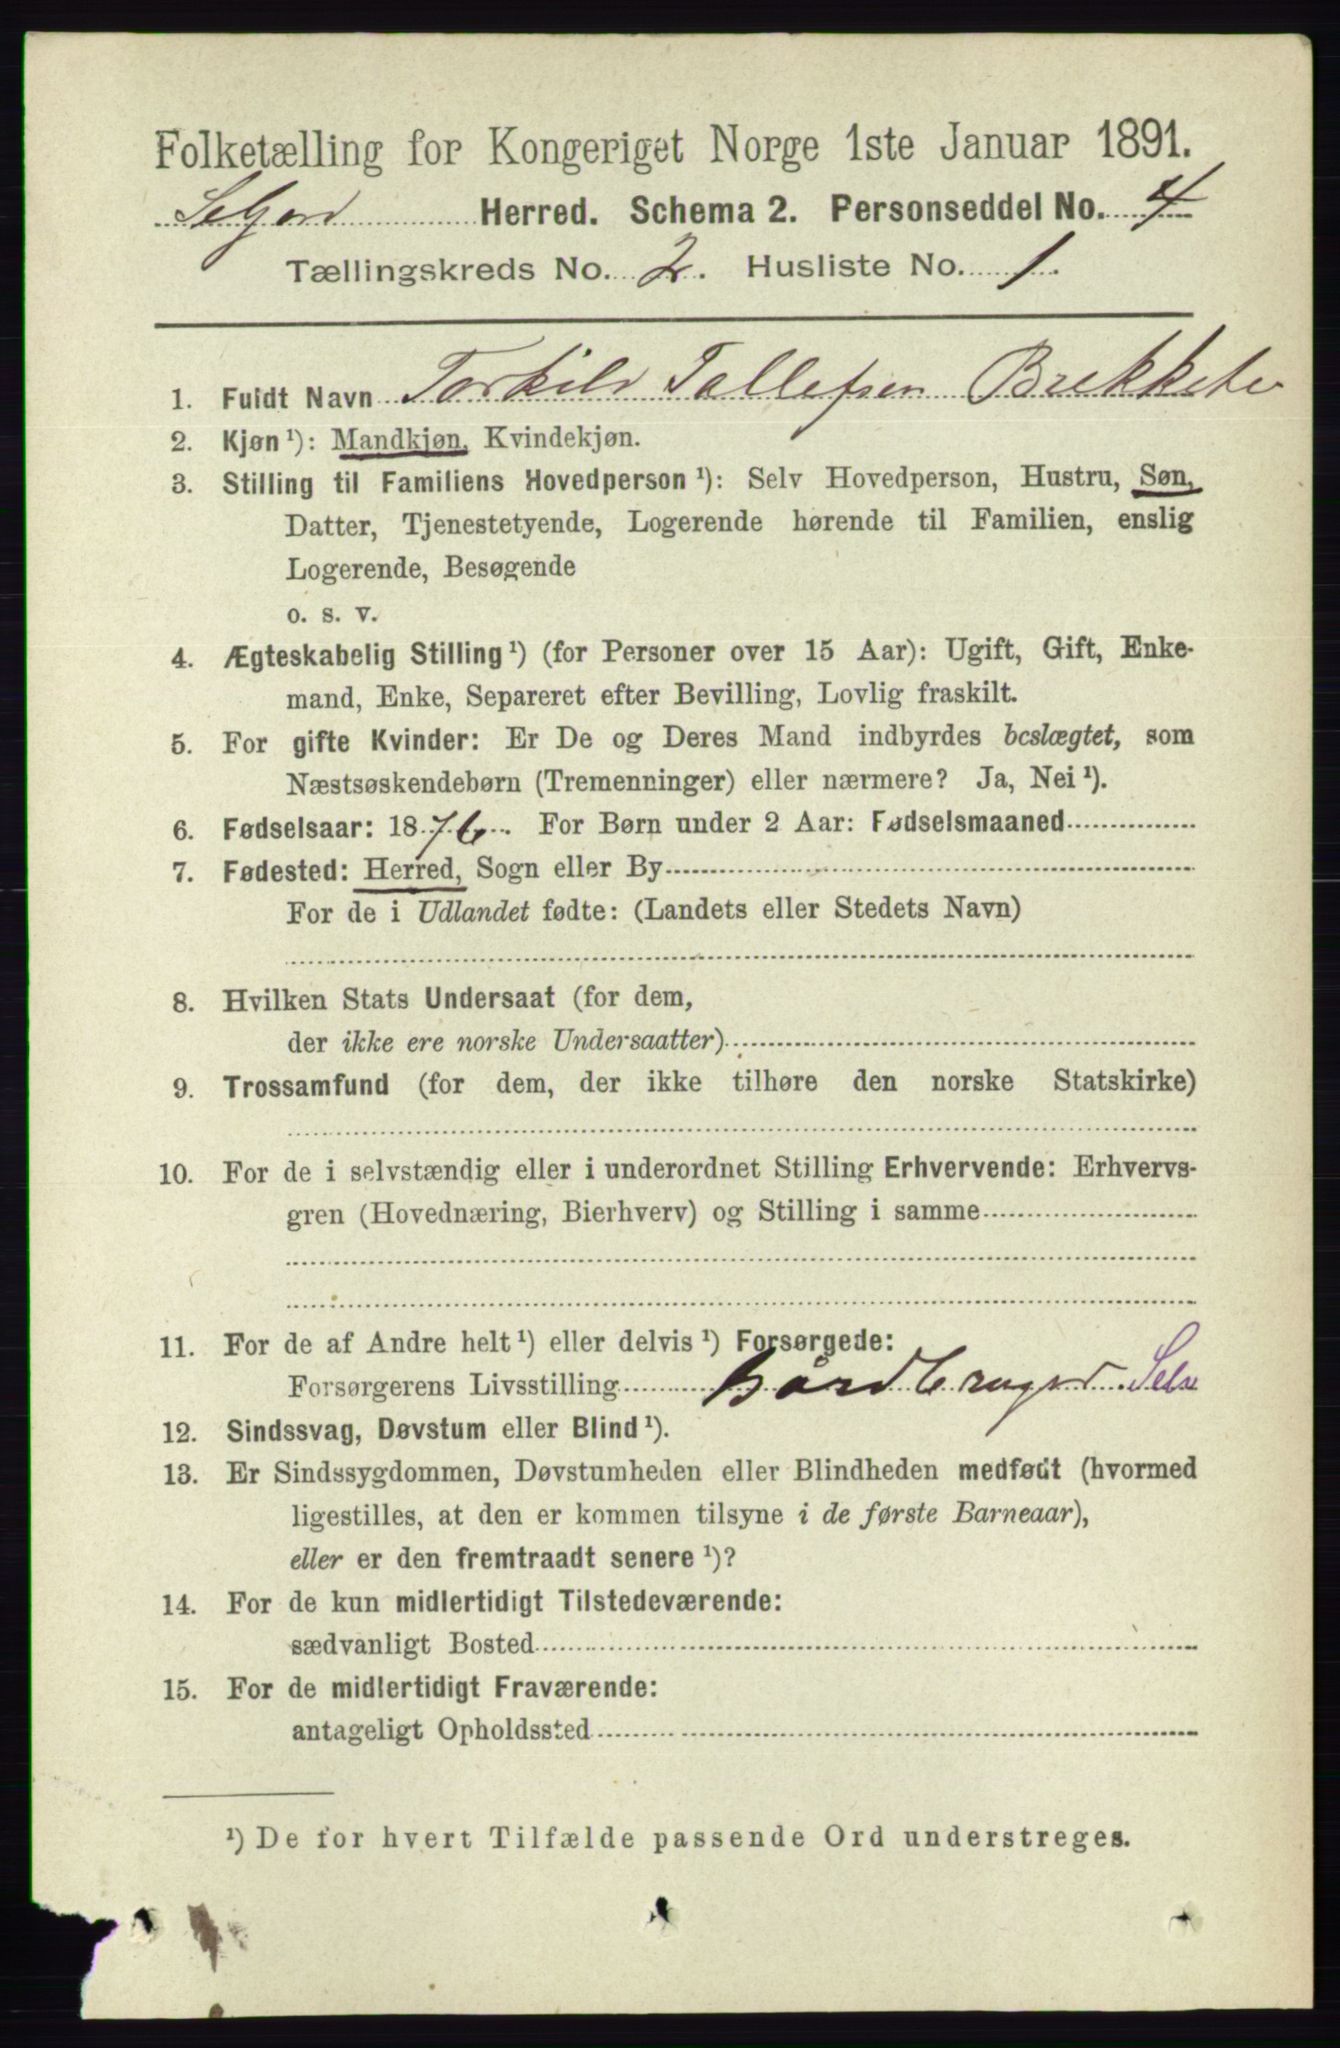 Folketælling for Kongeriget Norge 1ste Januar 1891.
Seljord Herred. Schema 2. Personseddel No. 4
Tællingskreds No. 2. Husliste No. 1.
1. Fuldt Navn Torkild Tallefsen Brekke
2. Kjøn ¹): Mandkjøn, Kvindekjøn.
3. Stilling til Familiens Hovedperson ¹): Selv Hovedperson, Hustru, Søn,
Datter, Tjenestetyende, Logerende hørende til Familien, enslig
Logerende, Besøgende
o. s. v.
4. Ægteskabelig Stilling ¹) (for Personer over 15 Aar): Ugift, Gift, Enke-
mand, Enke, Separeret efter Bevilling, Lovlig fraskilt.
5. For gifte Kvinder: Er De og Deres Mand indbyrdes beslægtet, som
Næstsøskendebørn (Tremenninger) eller nærmere? Ja, Nei ¹).
6. Fødselsaar: 1876. For Børn under 2 Aar: Fødselsmaaned
7. Fødested: Herred, Sogn eller By
For de i Udlandet fødte: (Landets eller Stedets Navn)
8. Hvilken Stats Undersaat (for dem,
der ikke ere norske Undersaatter)
9. Trossamfund (for dem, der ikke tilhøre den norske Statskirke)
10. For de i selvstændig eller i underordnet Stilling Erhvervende: Erhvervs-
gren (Hovednæring, Bierhverv) og Stilling i samme
11. For de af Andre helt ¹) eller delvis ¹) Forsørgede:
Forsørgerens Livsstilling Gårdbruger. Selv
12. Sindssvag, Døvstum eller Blind ¹).
13. Er Sindssygdommen, Døvstumheden eller Blindheden medfødt (hvormed
ligestilles, at den er kommen tilsyne i de første Barneaar),
eller er den fremtraadt senere ¹)?
14. For de kun midlertidigt Tilstedeværende:
sædvanligt Bosted
15. For de midlertidigt Fraværende:
antageligt Opholdssted
¹) De for hvert Tilfælde passende Ord understreges.